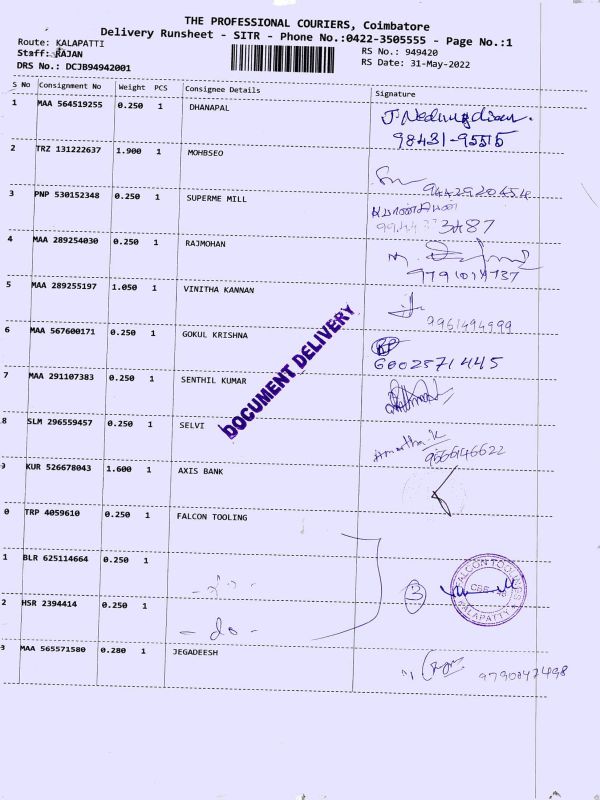 THE PROFESSIONAL COURIERS, Coimbatore
Delivery Runsheet - SITR - Phone No.:0422-3505555 - Page No.:1
Route: KALAPATTI
RS No.: 949420
Staff: RAJAN
RS Date: 31-May-2022
DRS No.: DCJB94942001
S No Consignment No Weight PCS Consignee Details Signature
1 MAA 564519255 0.250 1 DHANAPAL
98431-95515
2 TRZ 131222637 1.900 1 MOHBSEO
9442920454
3 PNP 530152348 0.250 1 SUPERME MILL
4 MAA 289254030 0.250 1 RAJMOHAN
5 MAA 289255197 1.050 1 VINITHA KANNAN
9961494999
6 MAA 567600171 0.250 1 GOKUL KRISHNA
6002571445
7 MAA 291107383 0.250 1 SENTHIL KUMAR
DOCUMENT DELIVERY
8 SLM 296559457 0.250 1 SELVI
Amartha.K
9566146622
9 KUR 526678043 1.600 1 AXIS BANK
0 TRP 4059610 0.250 1 FALCON TOOLING
1 BLR 625114664 0.250 1
3
FALCON TOOLINGS
KALAPATTY
2 HSR 2394414 0.250 1
- do -
3 MAA 565571580 0.280 1 JEGADEESH